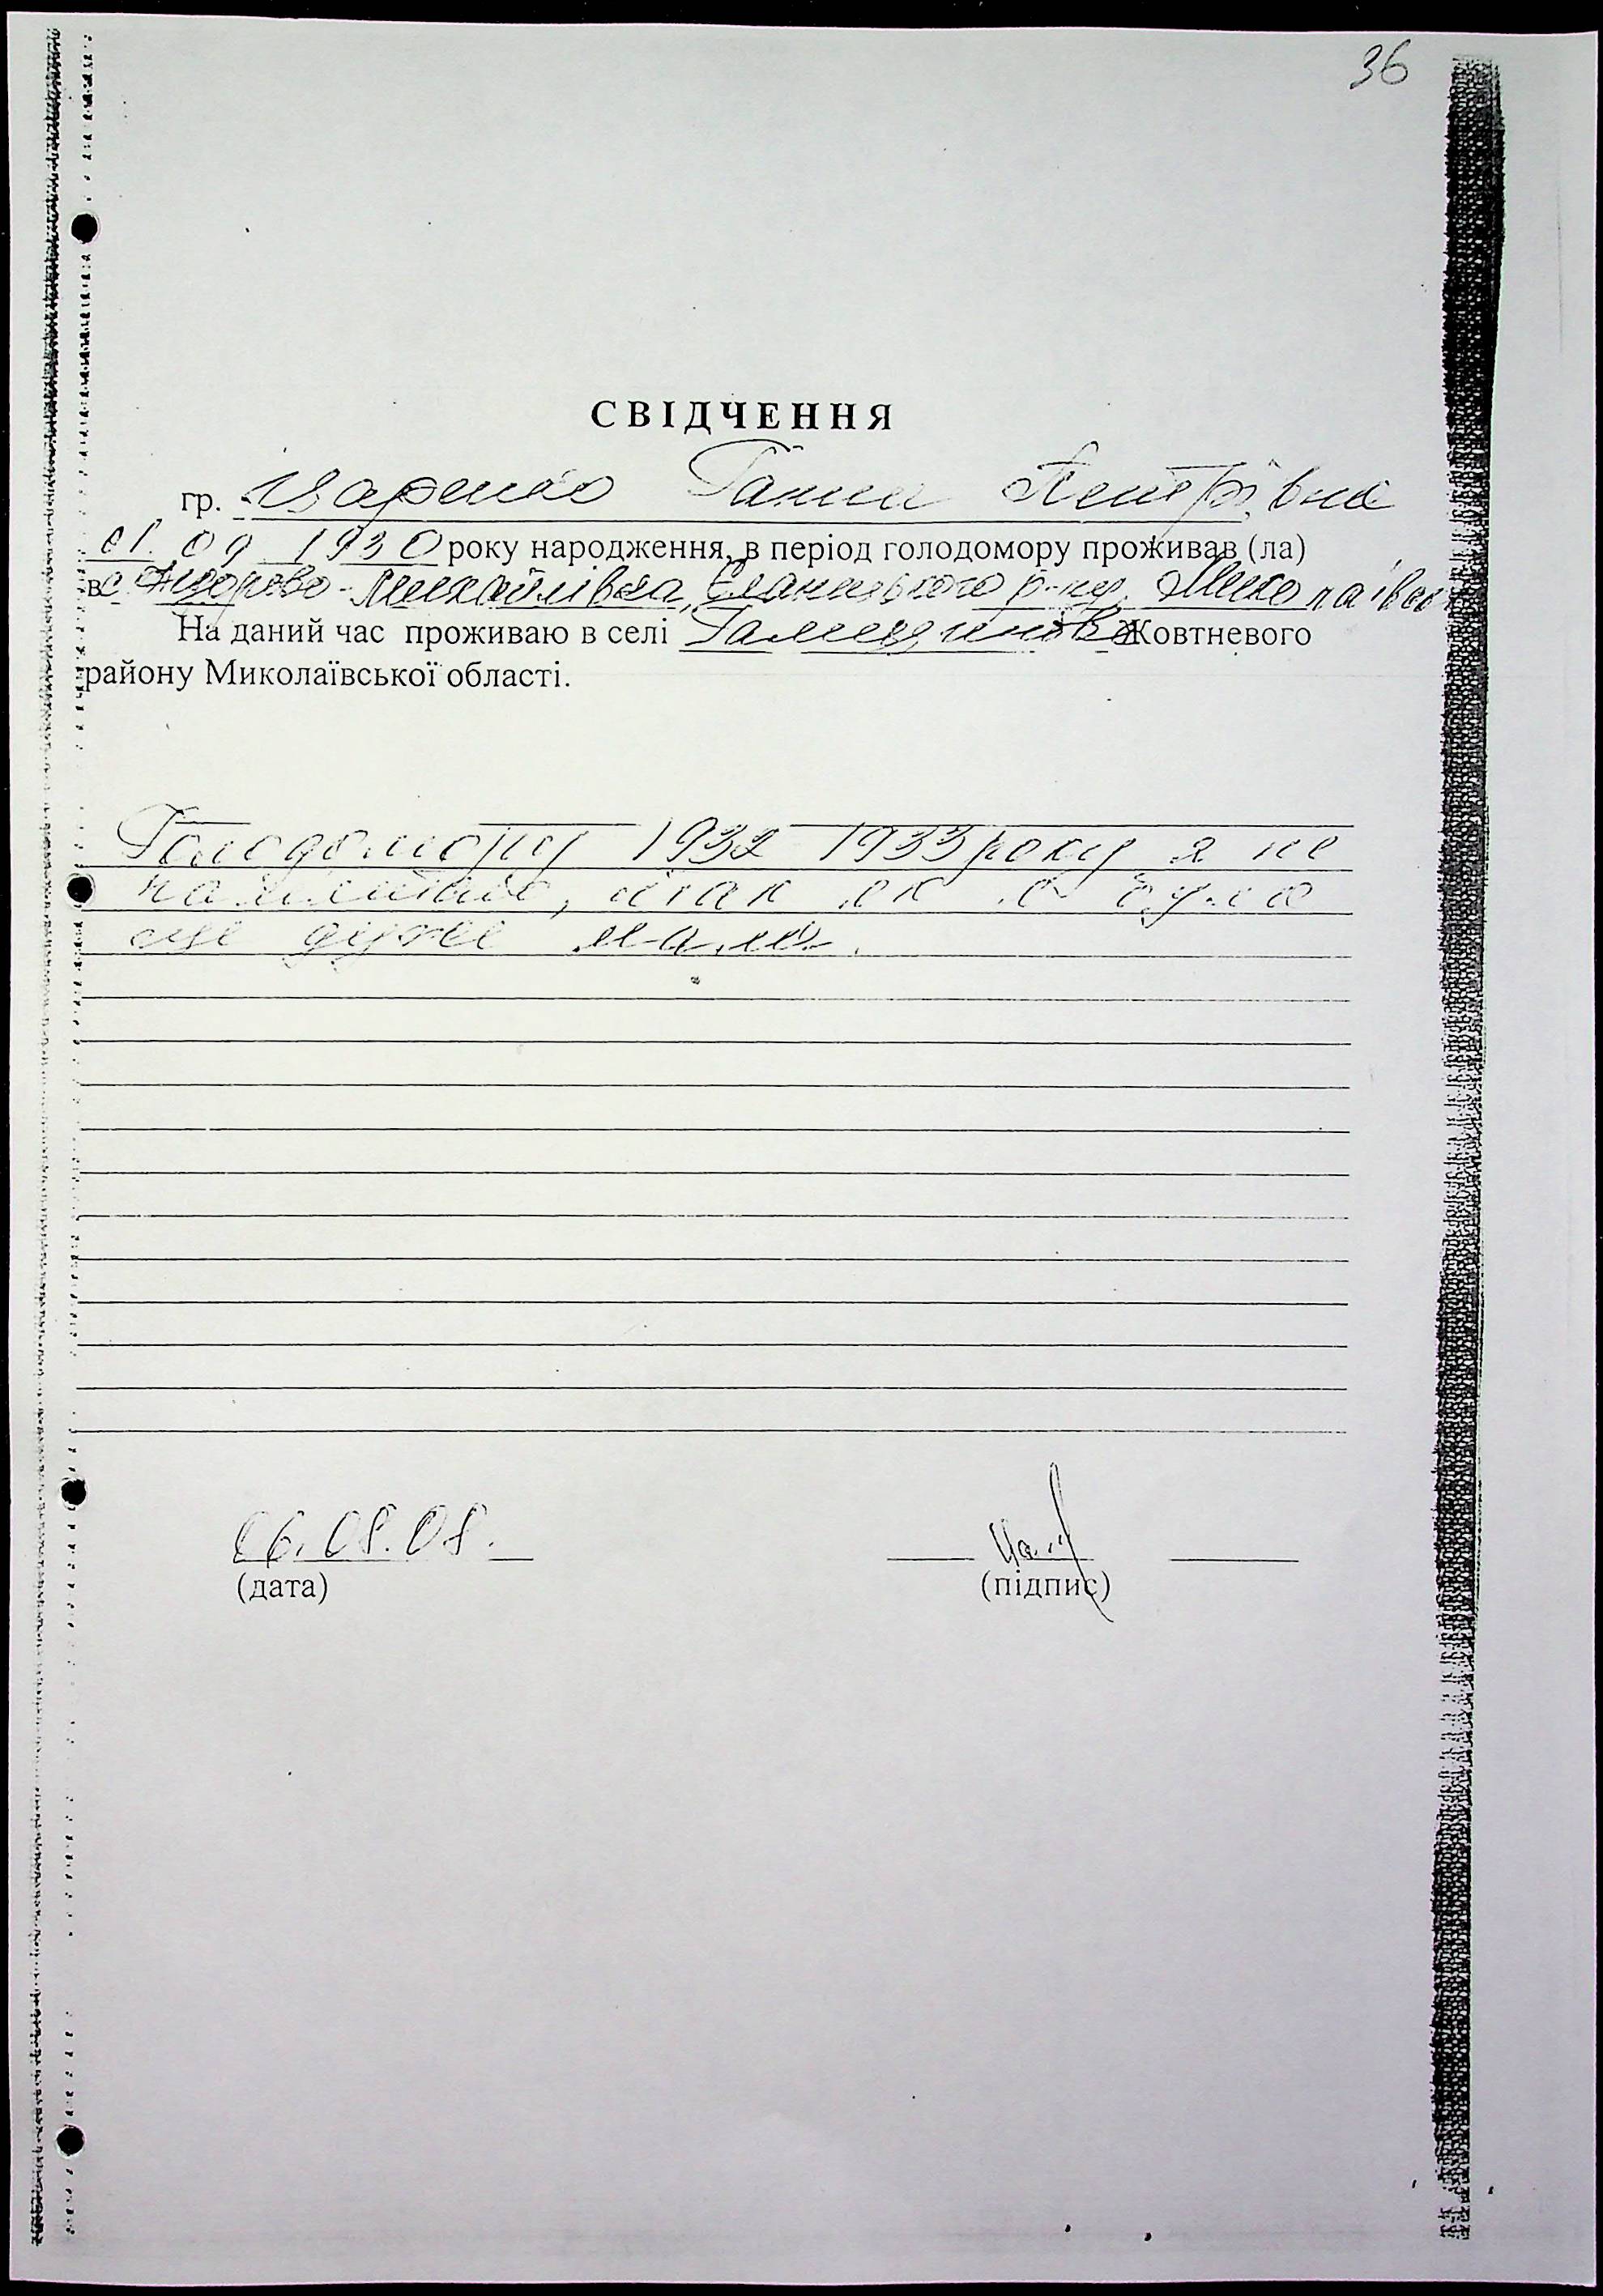 36
СВІДЧЕННЯ
гр. Царенко Ганна Петрівна
01. 09 1930 року народження, в період голодомору проживав (ла)
в с. Михайлівка, Єланецького р-ну, Миколаївс
На даний час проживаю в селі Галицинове Жовтневого
району Миколаївської області.
Голодомору 1932 1933 року я не
пам'ятаю, так як я була
ще дуже мала.
06.08.08.
(дата)
(підпис)